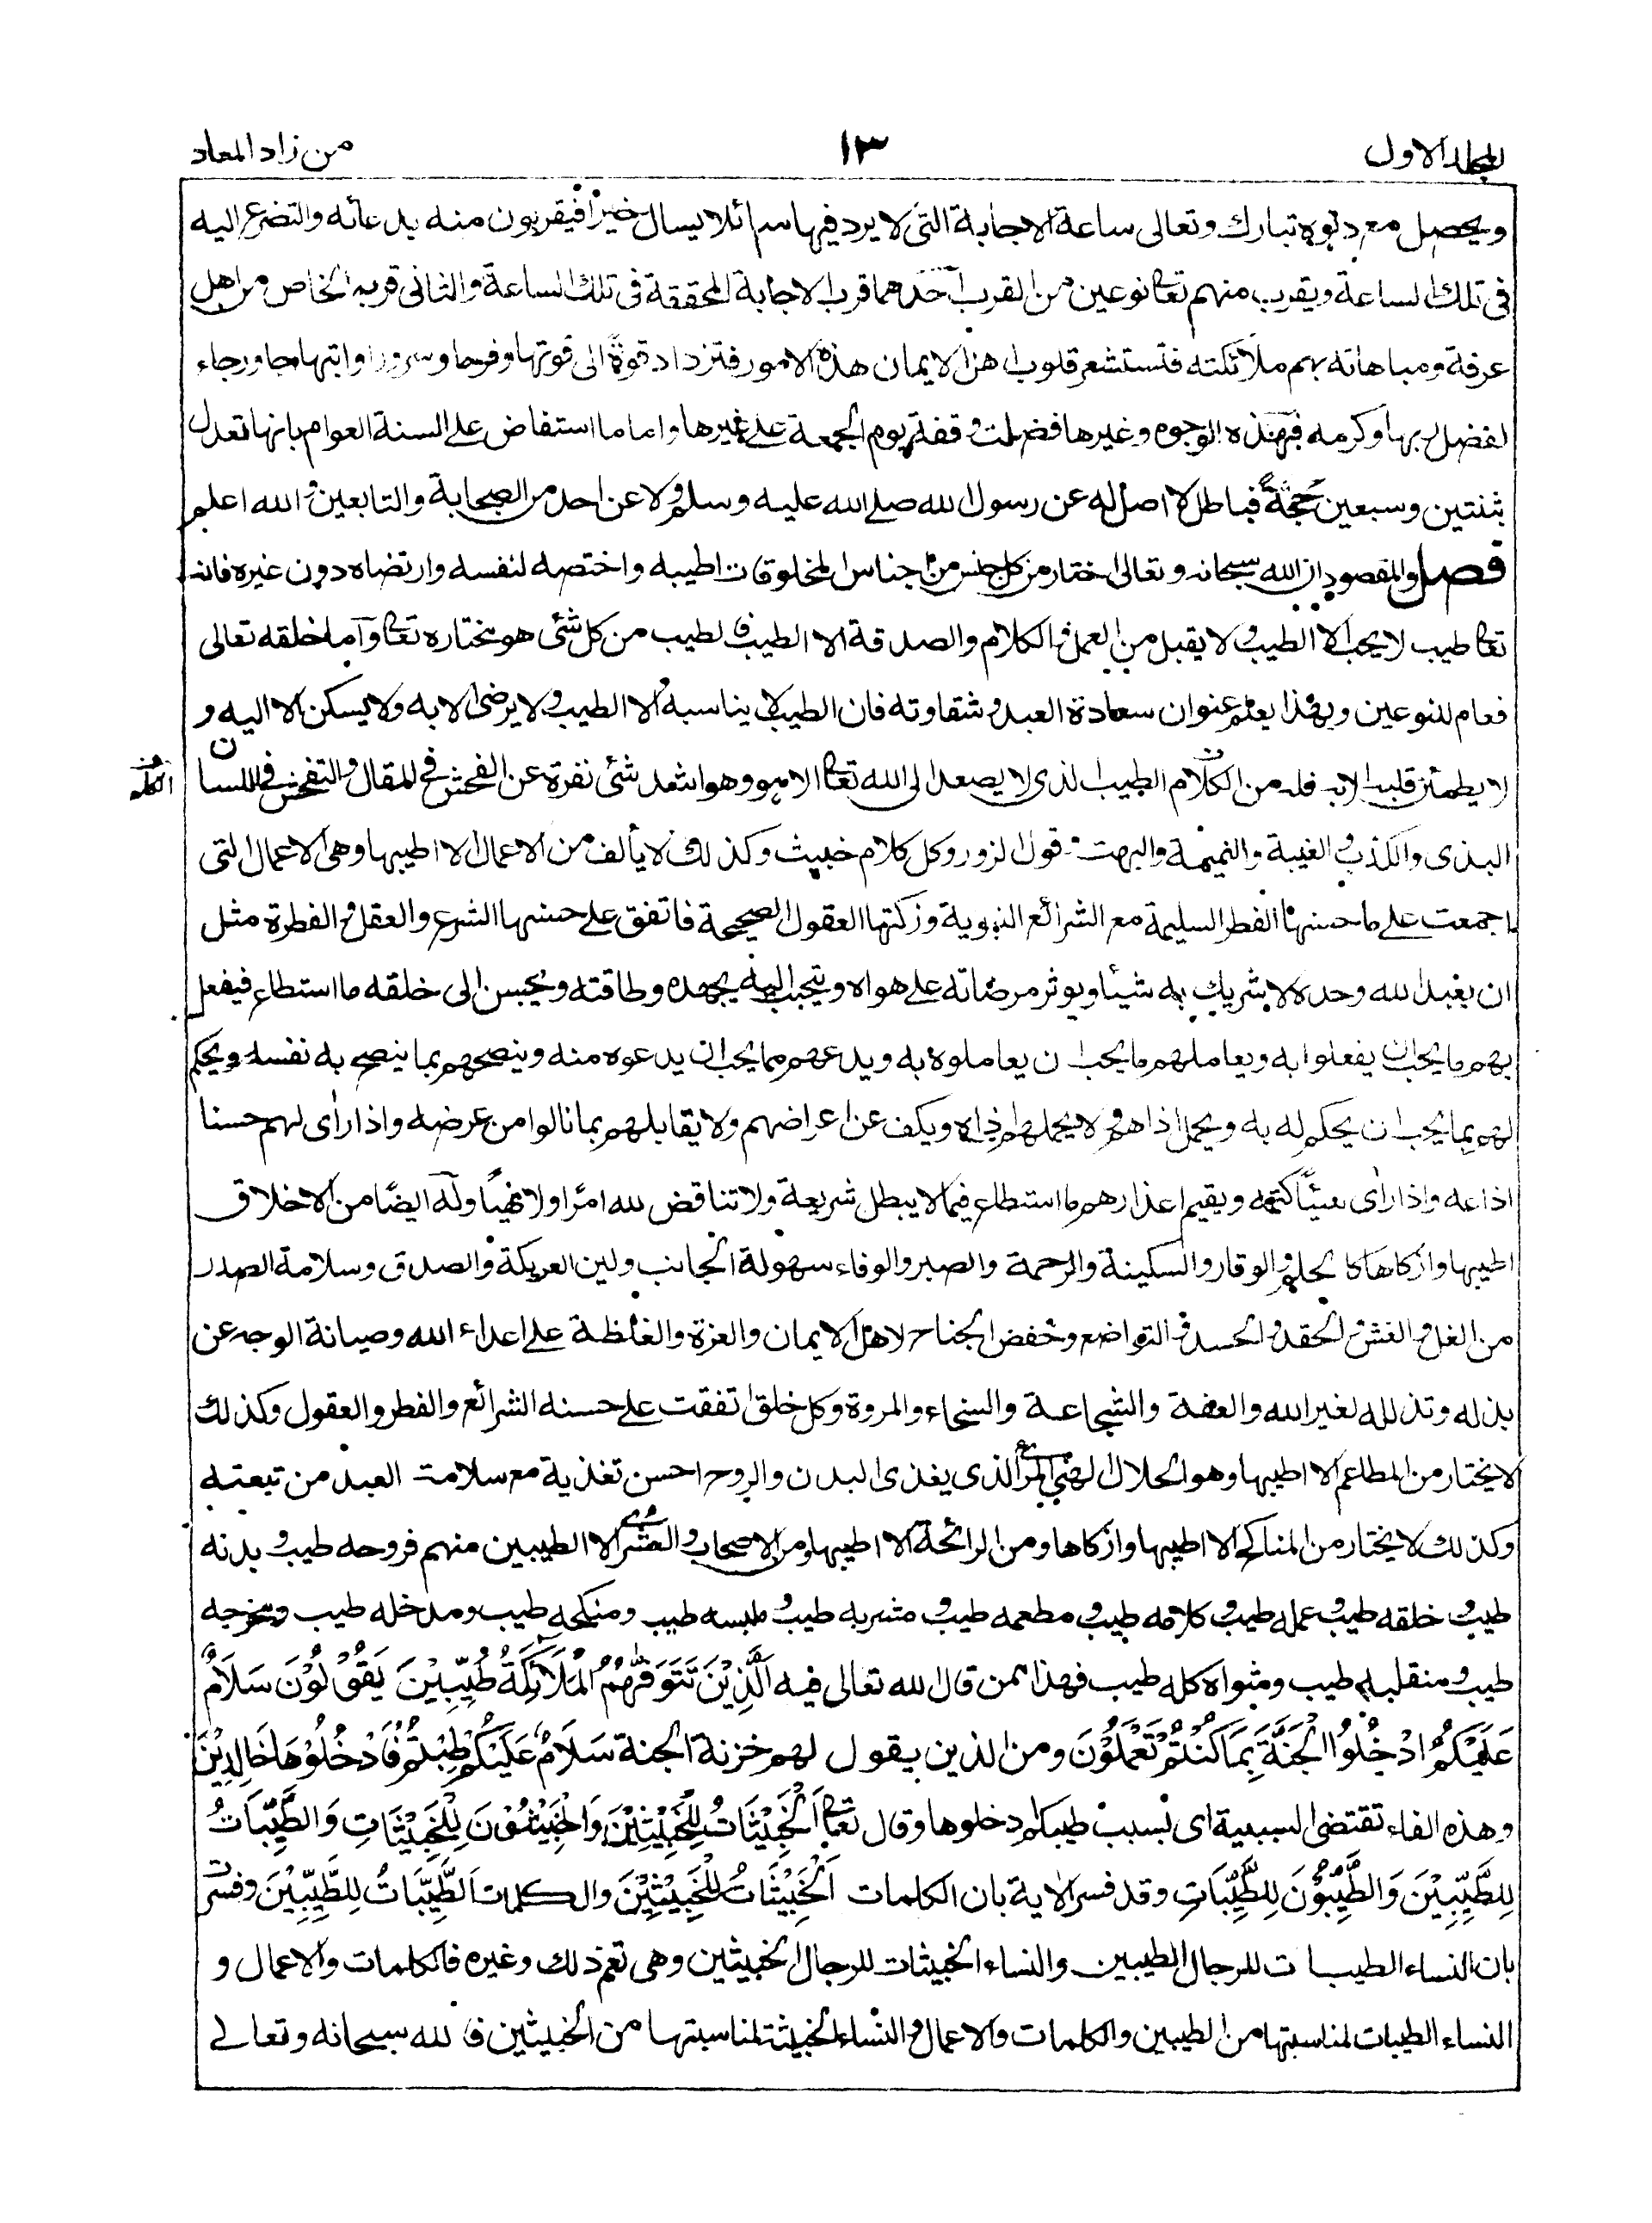 المجلد الاول
١٣
من زاد المعاد
ويحصل مع دنوه تبارك وتعالى ساعة الاجابة التى لا يرد فيها سائلا يسال خيرا فيقربون منه بدعائه والتضرع اليه
فى تلك الساعة ويقرب منهم تعالى نوعين من القرب احدهما قرب الاجابة المحققة فى تلك الساعة والثانى قربه الخاص من اهل
عرفة ومباهاته بهم ملائكته فتستشعر قلوب اهل الايمان هذه الامور فتزداد قوة الى قوتها وفرحا وسرورا وابتهاجا ورجاء
لفضل ربها وكرمه فبهذه الوجوه وغيرها فضلت وقفة يوم الجمعة على غيرها واما ما استفاض على السنة العوام بانها تعدل
ثنتين وسبعين حجة فباطل لا اصل له عن رسول الله صلى الله عليه وسلم ولا عن احد من الصحابة والتابعين والله اعلم
فصل والمقصود ان الله سبحانه وتعالى اختار من كل جنس من اجناس المخلوقات اطيبه واختصه لنفسه وارتضاه دون غيره فانه
تعالى طيب لا يحب الا الطيب ولا يقبل من العمل والكلام والصدقة الا الطيب فالطيب من كل شئ هو مختاره تعالى واما خلقه تعالى
فعام للنوعين وبهذا يعلم عنوان سعادة العبد وشقاوته فان الطيب لا يناسبه الا الطيب ولا يرضى الا به ولا يسكن الا اليه و
لا يطمئن قلبه الا به فله من الكلام الطيب الذى لا يصعد الى الله تعالى الا هو وهو اشد شئ نفرة عن الفحش فى المقال والتفحش فى اللسان
البذى والكذب والغيبة والنميمة والبهت وقول الزور وكل كلام خبيث وكذلك لا يألف من الاعمال الا اطيبها وهى الاعمال التى
اجمعت على حسنها الفطر السليمة مع الشرائع النبوية وزكتها العقول الصحيحة فاتفق على حسنها الشرع والعقل والفطرة مثل
ان يعبد الله وحده لا يشريك به شيئا ويوثر مرضاته على هواه ويتحبب اليه بجهده وطاقته ويحسن الى خلقه ما استطاع فيفعل
بهم ما يحب ان يفعلوا به ويعاملهم ما يحب ان يعاملوه به ويدعهم مما يحب ان يدعوه منه وينصحهم بما ينصح به نفسه ويحكم
لهم بما يحب ان يحكم له به ويحمل اذاهم ولا يحملهم اذاه ويكف عن اعراضهم ولا يقابلهم بما نالوا من عرضه واذا رأى لهم حسنا
اذاعه واذا رأى سيئا كتمه ويقيم اعذارهم ما استطاع فيما لا يبطل شريعة ولا تناقض لله امرا ولا نهيا وله ايضا من الاخلاق
اطيبها وازكاها كالحلم والوقار والسكينة والرحمة والصبر والوفاء سهولة الجانب ولين العريكة والصدق وسلامة الصدر
من الغل والغش والحقد والحسد والتواضع وخفض الجناح لاهل الايمان والعزة والغلظة على اعداء الله وصيانة الوجه عن
بذله وتذلله لغير الله والعفة والشجاعة والسخاء والمروة وكل خلق اتفقت على حسنه الشرائع والفطر والعقول وكذلك
لا يختار من المطاعم الا اطيبها وهو الحلال الهنئ المرئ الذى يغذى البدن والروح احسن تغذية مع سلامة العبد من تبعته
وكذلك لا يختار من المناكح الا اطيبها وازكاها ومن الرائحة الا اطيبها ومن الاصحاب والعشراء الا الطيبين منهم فروحه طيب وبدنه
طيب وخلقه طيب وعمله طيب وكلامه طيب ومطعمه طيب ومشربه طيب وملبسه طيب ومنكحه طيب ومدخله طيب ومخرجه
طيب ومنقلبه طيب ومثواه كله طيب فهذا ممن قال الله تعالى فيه اَلَّذِيْنَ تَتَوَفّٰهُمُ الْمَلَائِكَةُ طَيِّبِيْنَ يَقُوْلُوْنَ سَلَامٌ
عَلَيْكُمُ ادْخُلُوا الْجَنَّةَ بِمَا كُنْتُمْ تَعْمَلُوْنَ ومن الذين يقول لهم خزنة الجنة سَلَامٌ عَلَيْكُمْ طِبْتُمْ فَادْخُلُوْهَا خَالِدِيْنَ
وهذه الفاء تقتضى السببية اى بسبب طيبكم ادخلوها وقال تعالى اَلْخَبِيْثَاتُ لِلْخَبِيْثِيْنَ وَالْخَبِيْثُوْنَ لِلْخَبِيْثَاتِ وَالطَّيِّبَاتُ
لِلطَّيِّبِيْنَ وَالطَّيِّبُوْنَ لِلطَّيِّبَاتِ وقد فسر الاية بان الكلمات اَلْخَبِيْثَاتُ لِلْخَبِيْثِيْنَ والكلمات اَلطَّيِّبَاتُ لِلطَّيِّبِيْنَ وفسرت
بان النساء الطيبات للرجال الطيبين والنساء الخبيثات للرجال الخبيثين وهى تعم ذلك وغيره فالكلمات والاعمال و
النساء الطيبات لمناسبتها من الطيبين والكلمات والاعمال والنساء الخبيثة لمناسبتها من الخبيثين فالله سبحانه وتعالى